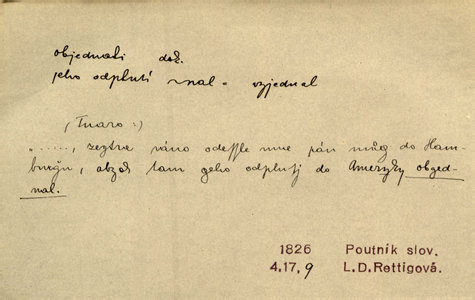 objednati dok.
jeho odplutí vyjednal
(Tvaro:)
„....., zegtra ráno odessle mne pán můg do Ham-
burgu, abych tam geho odplutj do Ameryky obged-
nal.
1826 Poutník slov.
4.17,9 L.D.Rettigová.